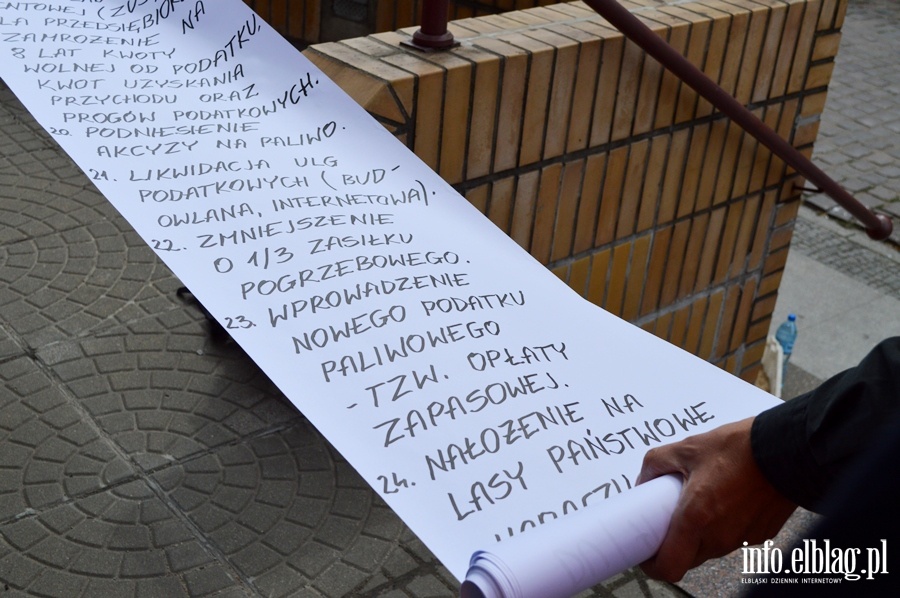 (ZUS
LA PRZEDSIĘBIOR
ZAMROŻENIE NA
8 LAT KWOTY
WOLNEJ OD PODATKU,
KWOT UZYSKANIA
PRZYCHODU ORAZ
PROGÓW PODATKOWYCH.
20. PODNIESIENIE
AKCYZY NA PALIWO.
21. LIKWIDACJA ULG
PODATKOWYCH (BUD-
OWLANA, INTERNETOWA).
22. ZMNIEJSZENIE
O 1/3 ZASIŁKU
POGRZEBOWEGO.
23. WPROWADZENIE
NOWEGO PODATKU
PALIWOWEGO
- TZW. OPŁATY
ZAPASOWEJ.
24. NAŁOŻENIE NA
LASY PAŃSTWOWE
info.elblag.pl
ELBLĄSKI DZIENNIK INTERNETOWY